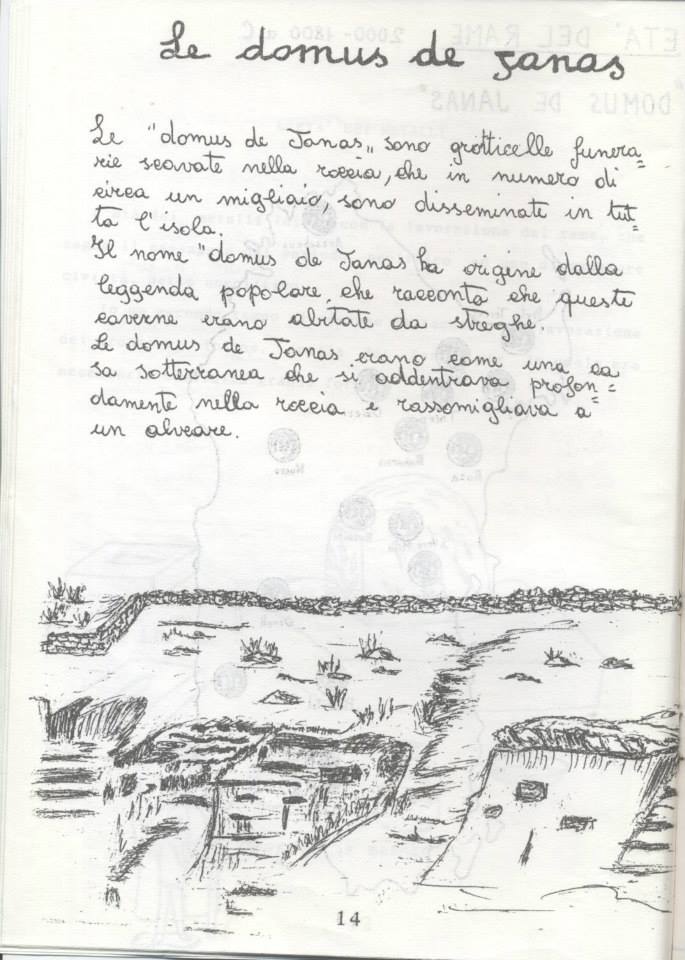 Le domus de Janas
Le "domus de Janas,, sono grotticelle funera=
rie scavate nella roccia, che in numero di
circa un migliaio, sono disseminate in tut=
ta l'isola.
Il nome "domus de Janas ha origine dalla
leggenda popolare, che racconta che queste
caverne erano abitate da streghe.
Le domus de Janas erano come una ca
sa sotterranea che si addentrava profon=
damente nella roccia e rassomigliava a=
un alveare.
14